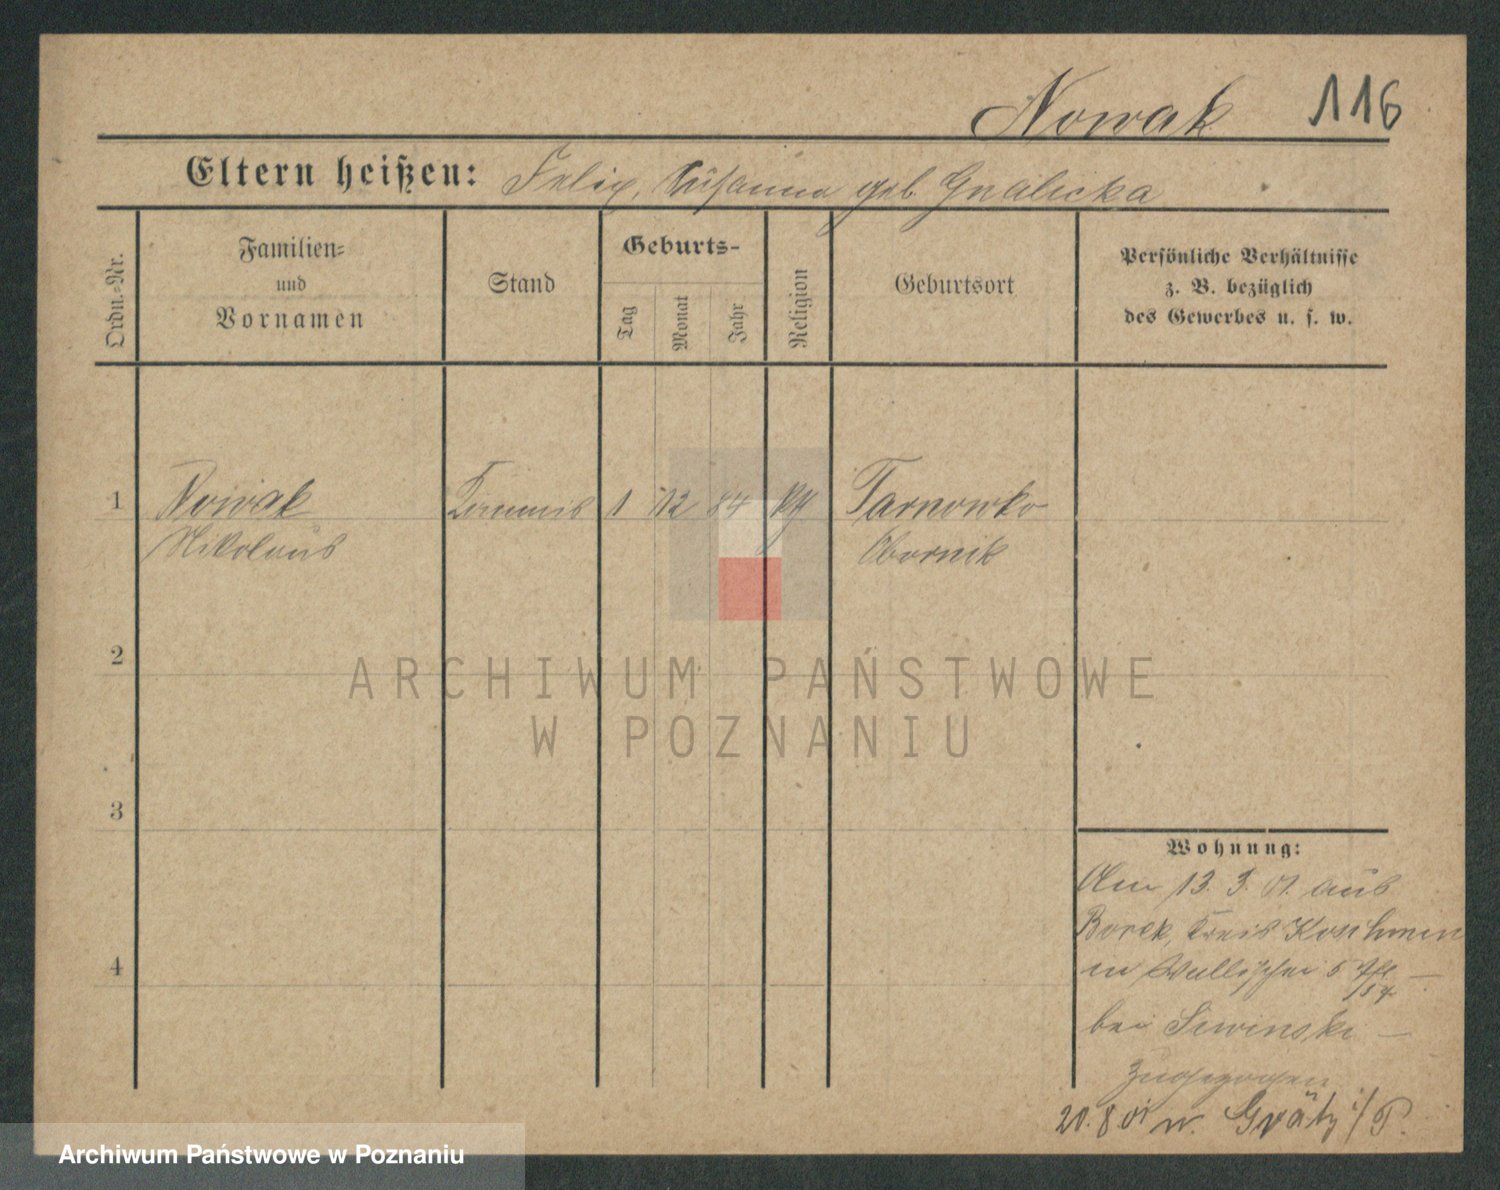 Nowak 116
Eltern heißen: Felix, Susanna geb. Gralicka
Ordn.=Nr.
Familien=
und
Vornamen
Stand
Geburts-
Tag
Monat
Jahr
Religion
Geburtsort
Persönliche Verhältnisse
z. B. bezüglich
des Gewerbes u. s. w.
1 Nowak 1 12 84 Tarnowko
Nikolaus Obornik
2
3
4
Wohnung:
Am 13. 3. 01. aus
Borek, Kreis Koschmin
in Wallischei 5
bei Siwinski –
zugezogen
20. 8. 01 n. Grätz i/P.
ARCHIWUM PAŃSTWOWE
W POZNANIU
Archiwum Państwowe w Poznaniu